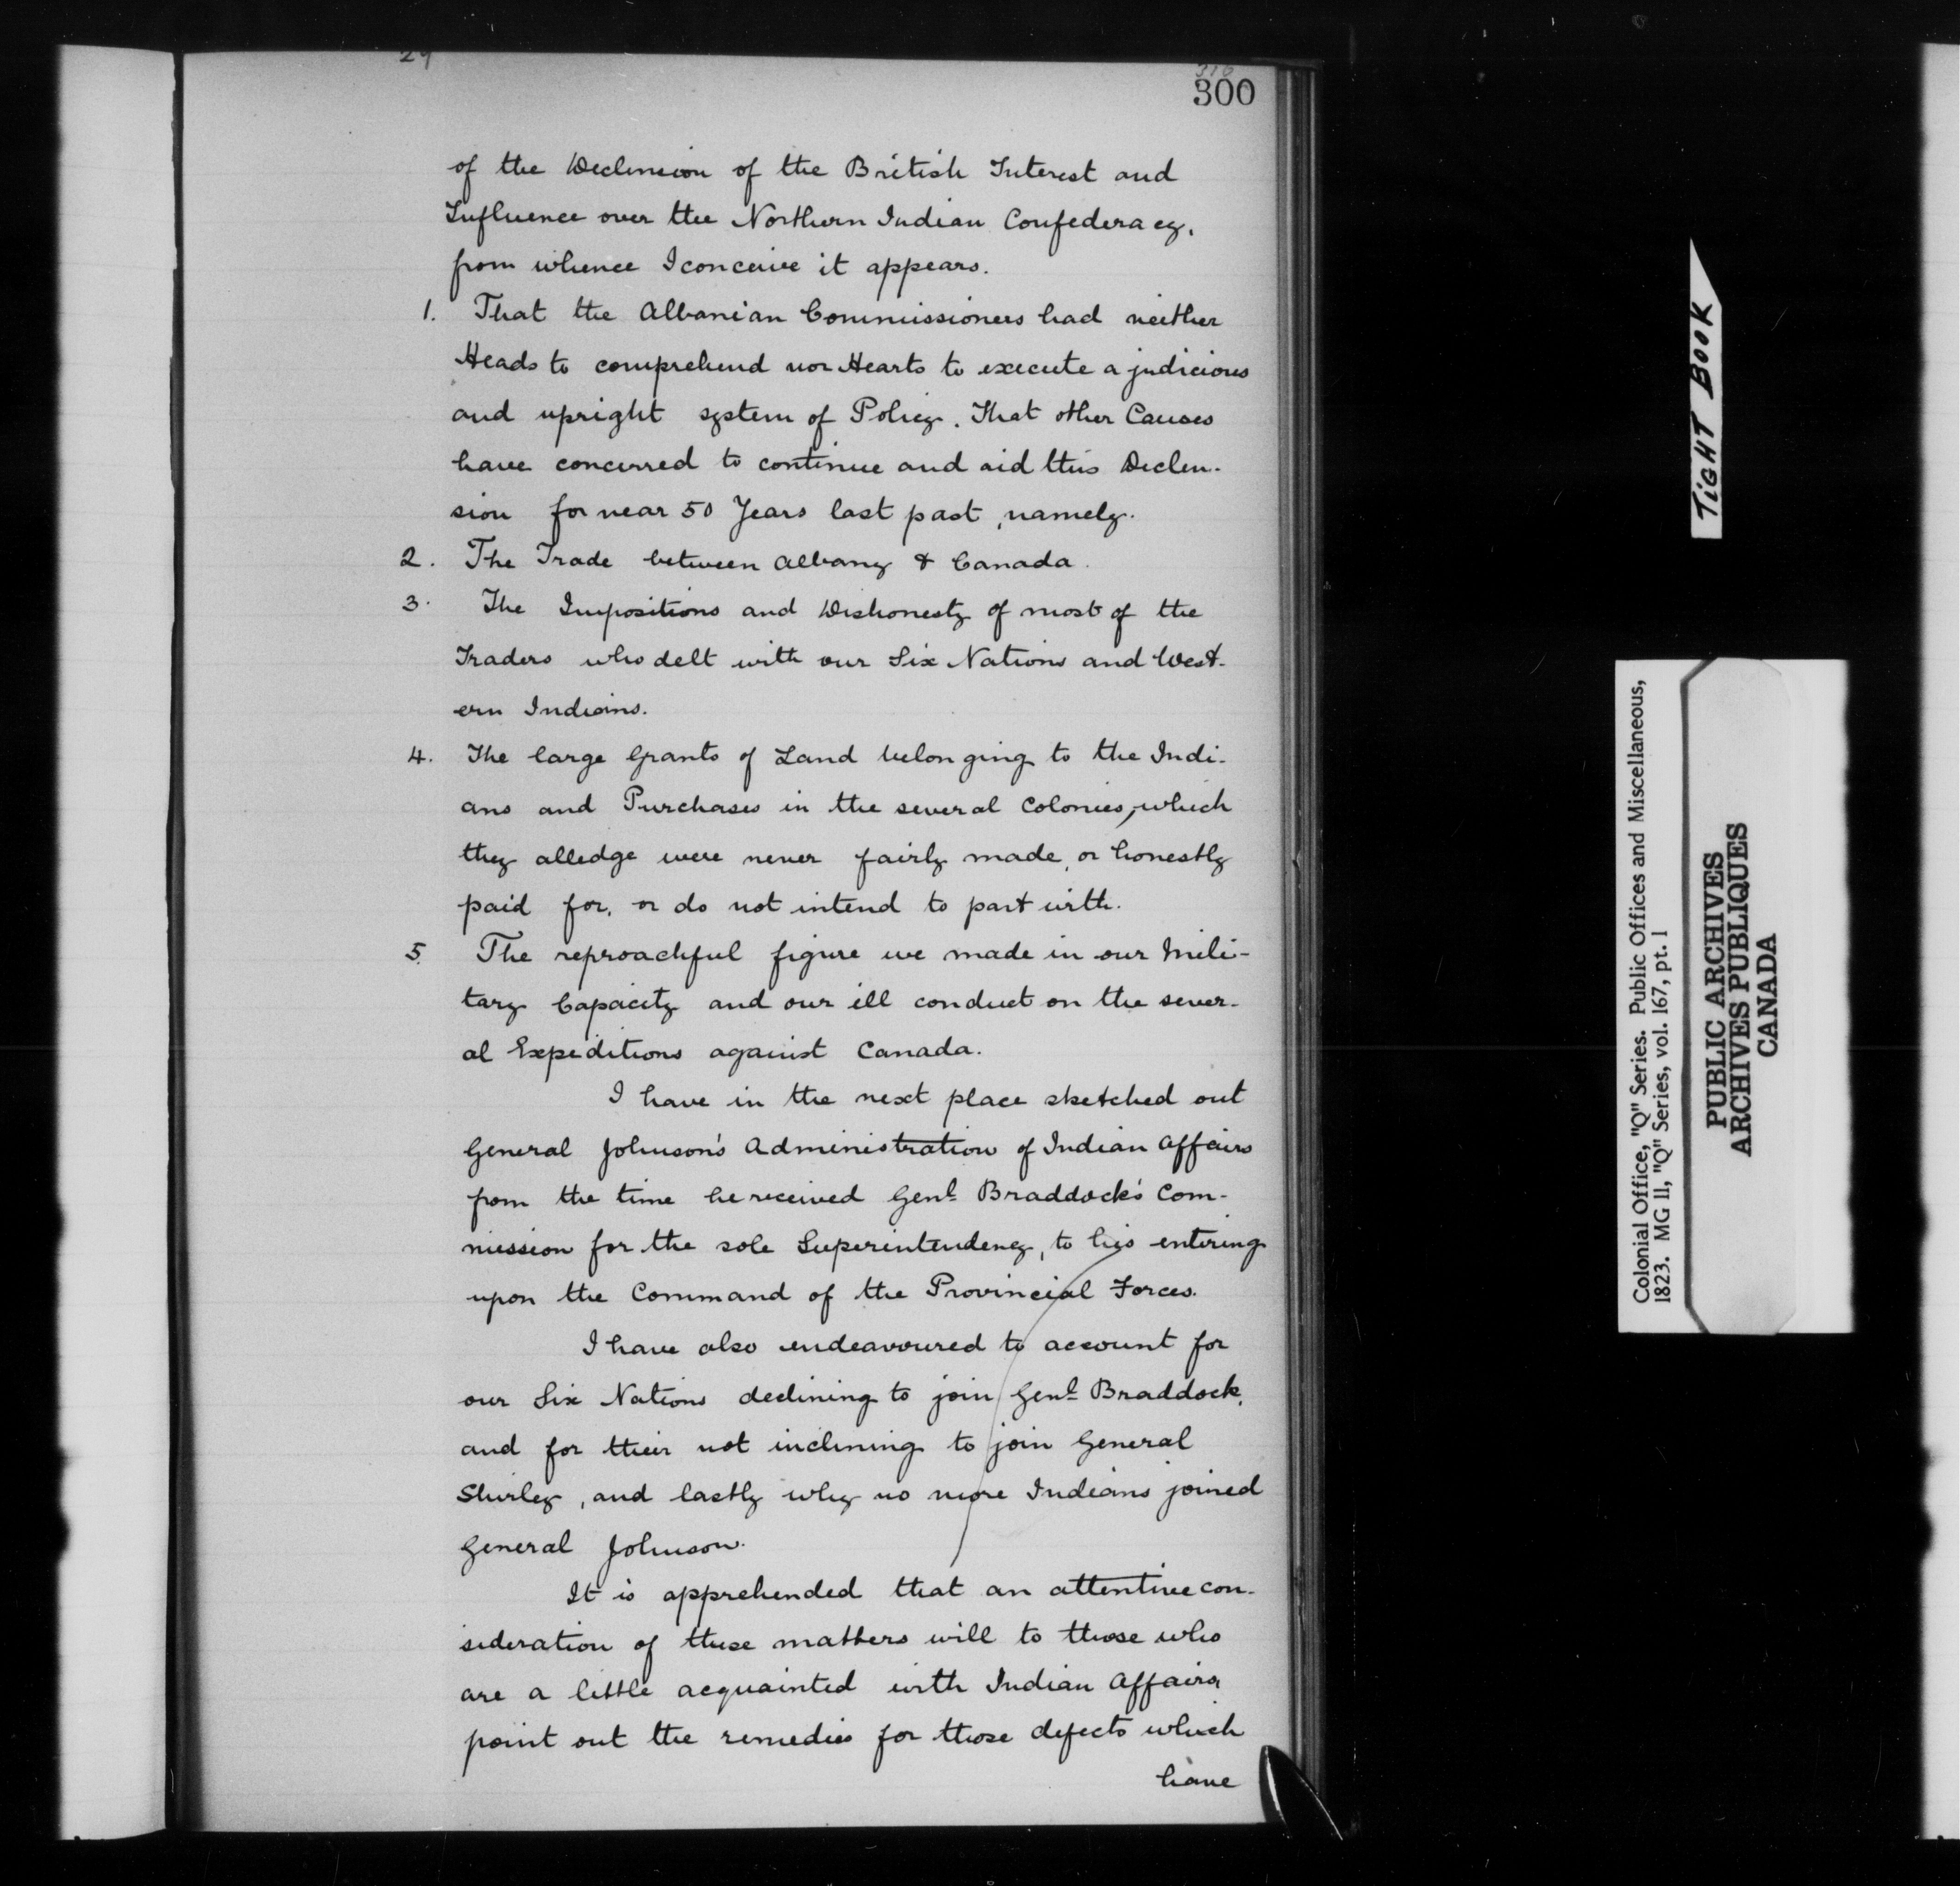 29
310
300
of the Declension of the British Interest and
Influence over the Northern Indian Confederacy,
from whence I conceive it appears.
1. That the Albanian Commissioners had neither
Heads to comprehend nor Hearts to execute a judicious
and upright system of Policy. That other Causes
have concurred to continue and aid this Declen-
sion for near 50 Years last past, namely.
2. The Trade between Albany & Canada.
3. The Impositions and Dishonesty of most of the
Traders who delt with our Six Nations and West-
ern Indians.
4. The large Grants of Land belonging to the Indi-
ans and Purchases in the several Colonies, which
they alledge were never fairly made, or honestly
paid for, or do not intend to part with.
5. The reproachful figure we made in our Mili-
tary Capacity and our ill conduct on the sever-
al Expeditions against Canada.
I have in the next place sketched out
General Johnson's Administration of Indian Affairs
from the time he received Genl Braddock's Com-
mission for the sole Superintendency, to his entering
upon the Command of the Provincial Forces.
I have also endeavoured to account for
our Six Nations declining to join Genl Braddock,
and for their not inclining to join General
Shirley, and lastly why no more Indians joined
General Johnson.
It is apprehended that an attentive con-
sideration of these matters will to those who
are a little acquainted with Indian Affairs,
point out the remedies for those defects which
have
TIGHT BOOK
Colonial Office, "Q" Series. Public Offices and Miscellaneous,
1823. MG 11, "Q" Series, vol. 167, pt. 1
PUBLIC ARCHIVES
ARCHIVES PUBLIQUES
CANADA